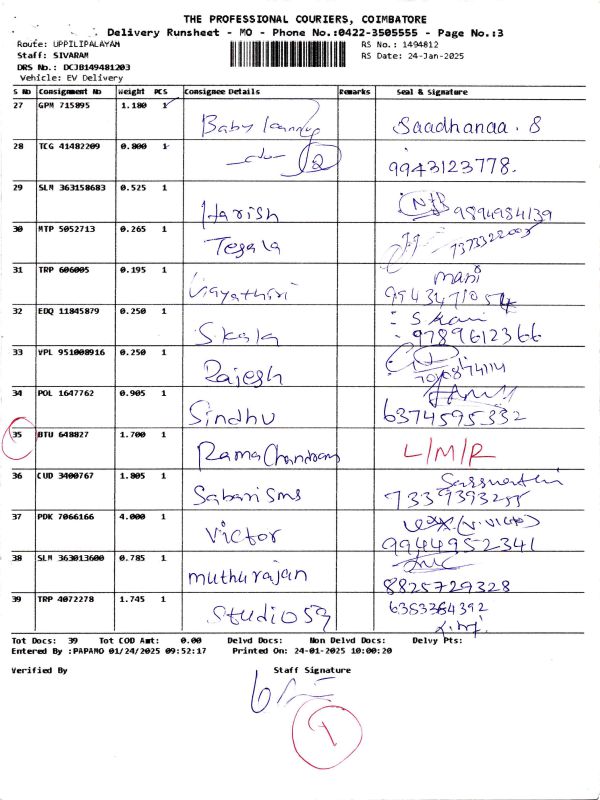 THE PROFESSIONAL COURIERS, COIMBATORE
Delivery Runsheet - MO - Phone No.:0422-3505555 - Page No.:3
Route: UPPILIPALAYAM RS No.: 1494812
Staff: SIVARAM RS Date: 24-Jan-2025
DRS No.: DCJB149481203
Vehicle: EV Delivery
S No Consignment No Weight PCS Consignee Details Remarks Seal & Signature
27 GPM 715895 1.180 1 Baby Saadhanaa. S
28 TCG 41482209 0.800 1 -do- 2 9943123778.
29 SLM 363158683 0.525 1 Harish 9894984139
30 MTP 5052713 0.265 1 Tegala
31 TRP 606005 0.195 1 mani
32 EDQ 11845879 0.250 1 S kala 9789612366
33 VPL 951008916 0.250 1 Rajesh
34 POL 1647762 0.905 1 Sindhu 6374595332
35 BTU 648827 1.700 1 Rama Chandran L/M/R
36 CUD 3400767 1.805 1 Sabari sms
37 PDK 7066166 4.000 1 Victor (V. Victo)
9944952341
38 SLM 363013600 0.785 1 muthurajan 8825729328
39 TRP 4072278 1.745 1 Studio 59 6383364392
Tot Docs: 39 Tot COD Amt: 0.00 Delvd Docs: Non Delvd Docs: Delvy Pts:
Entered By :PAPAMO 01/24/2025 09:52:17 Printed On: 24-01-2025 10:00:20
Verified By Staff Signature
1